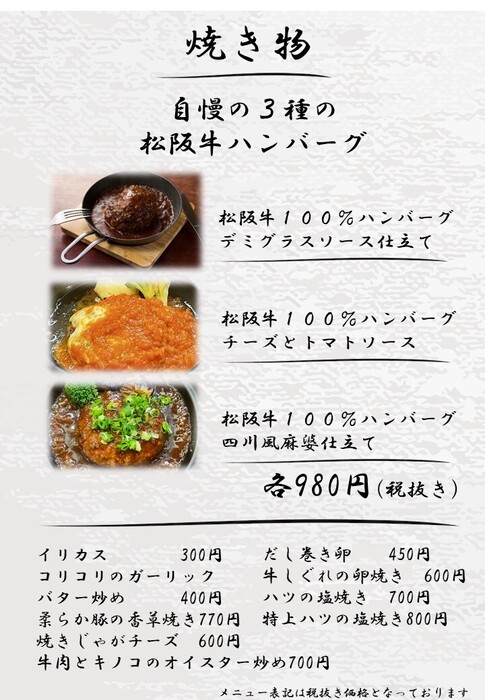 焼き物
自慢の３種の
松阪牛ハンバーグ
松阪牛１００％ハンバーグ
デミグラスソース仕立て
松阪牛１００％ハンバーグ
チーズとトマトソース
松阪牛１００％ハンバーグ
四川風麻婆仕立て
各980円(税抜き)
イリカス 300円
コリコリのガーリック
バター炒め 400円
柔らか豚の香草焼き770円
焼きじゃがチーズ 600円
牛肉とキノコのオイスター炒め700円
だし巻き卵 450円
牛しぐれの卵焼き 600円
ハツの塩焼き 700円
特上ハツの塩焼き800円
メニュー表記は税抜き価格となっております